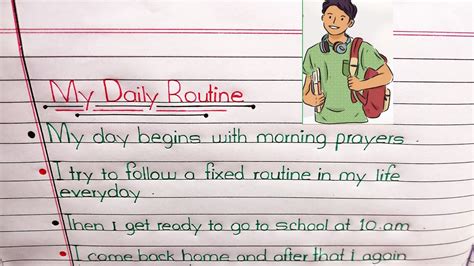 My Daily Routine
My day begins with morning prayers.
I try to follow a fixed routine in my life
everyday.
Then I get ready to go to school at 10 am
I come back home and after that i again